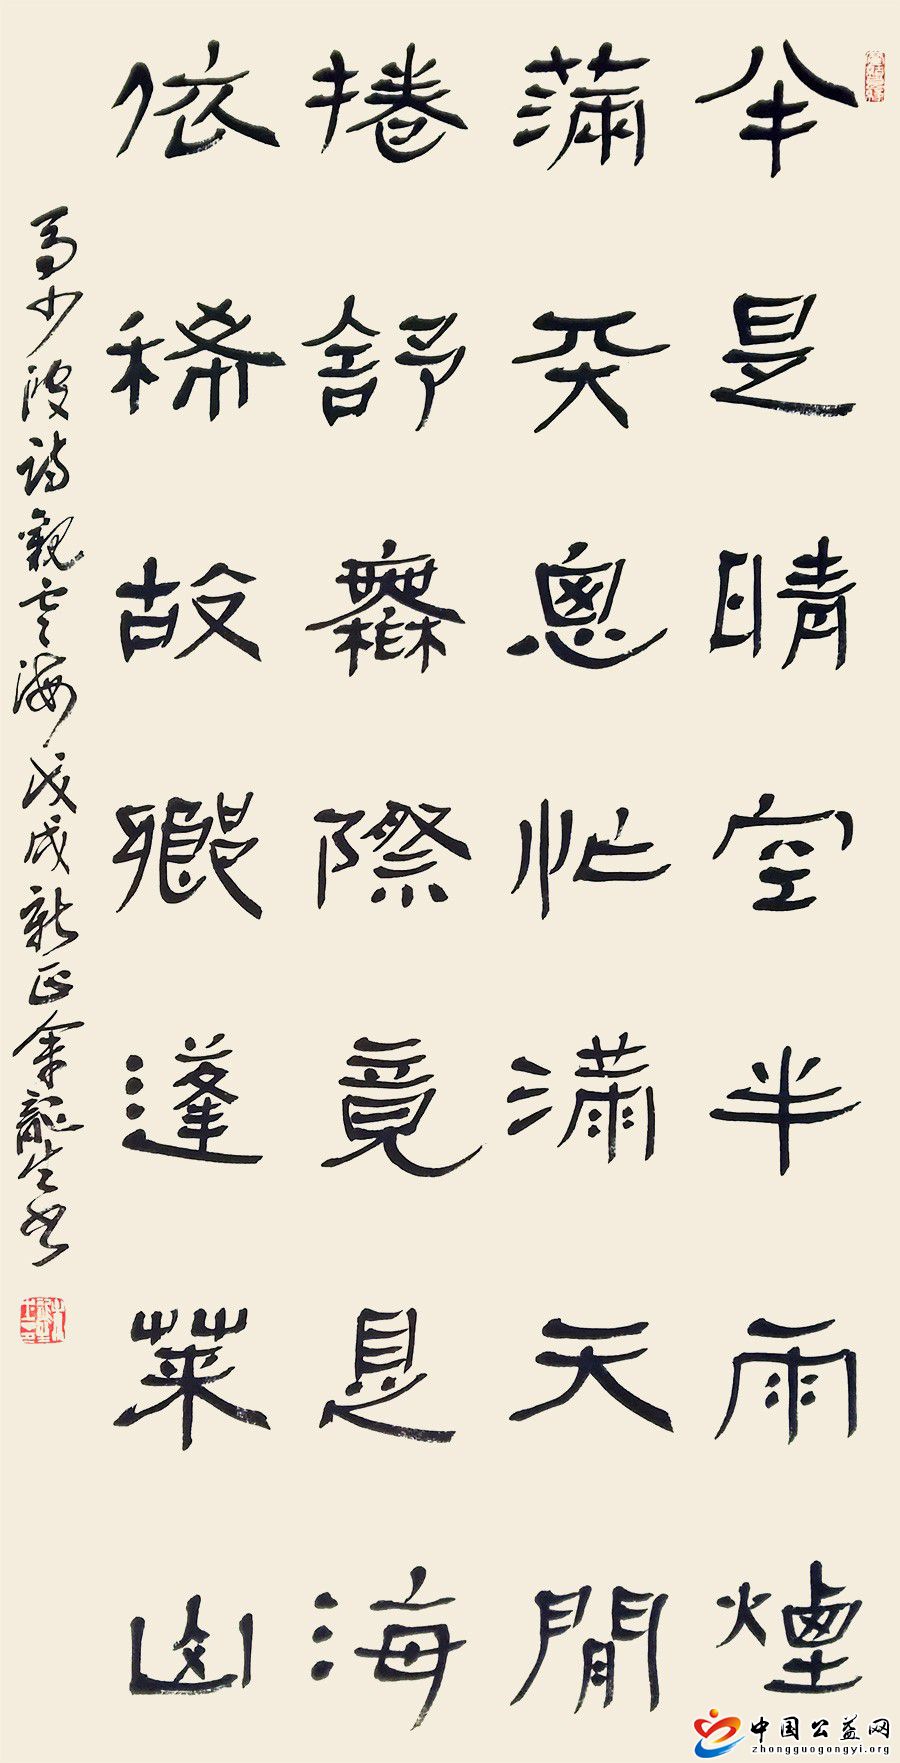 半是晴空半雨煙
滿天悤忙滿天間
捲舒無際竟是海
依稀故鄉蓬萊山
馬少波詩觀雲海戊戌新正余龍生書
中国公益网
zhongguogongyi.org